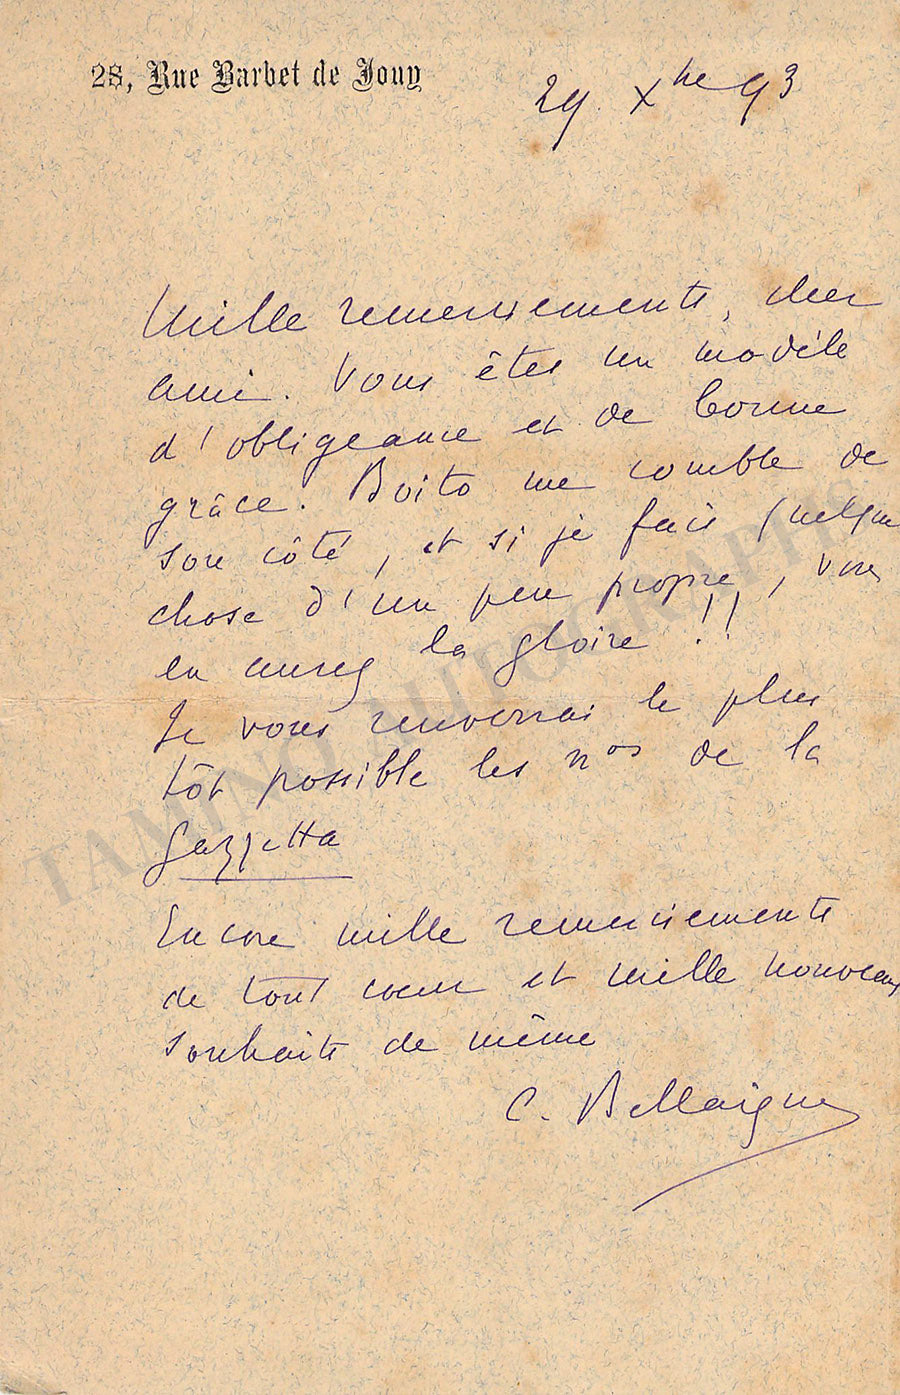 28, Rue Barbet de Jouy
29 Xbre 93
Mille remerciements, cher
ami. Vous êtes un modèle
d'obligeance et de bonne
grâce. Boito me comble de
son côté, et si je fais quelque
chose d'un peu propre, vous
en aurez la gloire !!
Je vous renverrai le plus
tôt possible les nos de la
Gazzetta
Encore mille remerciements
de tout coeur et mille nouveaux
souhaits de même
C. Bellaigue
TAMINO AUTOGRAPHS